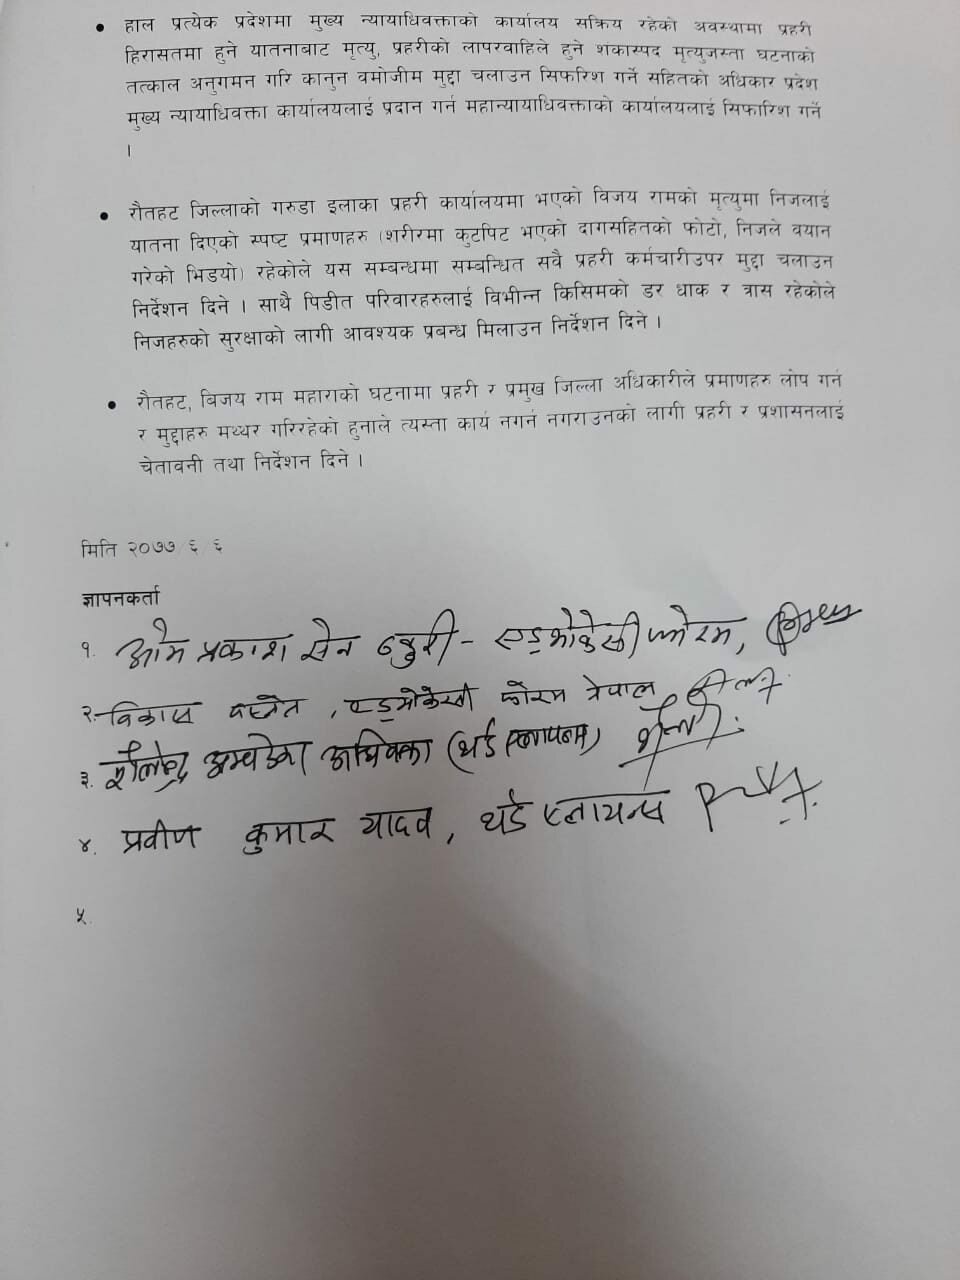 • हाल प्रत्येक प्रदेशमा मुख्य न्यायाधिवक्ताको कार्यालय सक्रिय रहेको अवस्थामा प्रहरी
हिरासतमा हुने यातनाबाट मृत्यु, प्रहरीको लापरवाहिले हुने शंकास्पद मृत्युजस्ता घटनाको
तत्काल अनुगमन गरि कानुन वमोजीम मुद्दा चलाउन सिफरिश गर्ने सहितको अधिकार प्रदेश
मुख्य न्यायाधिवक्ता कार्यालयलाई प्रदान गर्न महान्यायाधिवक्ताको कार्यालयलाई सिफारिश गर्ने
।
• रौतहट जिल्लाको गरुडा इलाका प्रहरी कार्यालयमा भएको विजय रामको मृत्युमा निजलाई
यातना दिएको स्पष्ट प्रमाणहरु (शरीरमा कुटपिट भएको दागसहितको फोटो, निजले वयान
गरेको भिडयो) रहेकोले यस सम्बन्धमा सम्बन्धित सवै प्रहरी कर्मचारीउपर मुद्दा चलाउन
निर्देशन दिने । साथै पिडीत परिवारहरुलाई विभीन्न किसिमको डर धाक र त्रास रहेकोले
निजहरुको सुरक्षाको लागी आवश्यक प्रबन्ध मिलाउन निर्देशन दिने ।
• रौतहट, बिजय राम महाराको घटनामा प्रहरी र प्रमुख जिल्ला अधिकारीले प्रमाणहरु लोप गर्न
र मुद्दाहरु मथ्थर गरिरहेको हुनाले त्यस्ता कार्य नगर्न नगराउनको लागी प्रहरी र प्रशासनलाई
चेतावनी तथा निर्देशन दिने ।
मिति २०७७/६/६
ज्ञापनकर्ता
१. ओम प्रकाश सेन ठकुरी - एड्भोकेसी फोरम,
२. विकास बस्नेत, एड्भोकेसी फोरम नेपाल
३. शैलेन्द्र अम्बेडकर अधिवक्ता (थर्ड एलायन्स)
४. प्रवीण कुमार यादव, थर्ड एलायन्स
५.